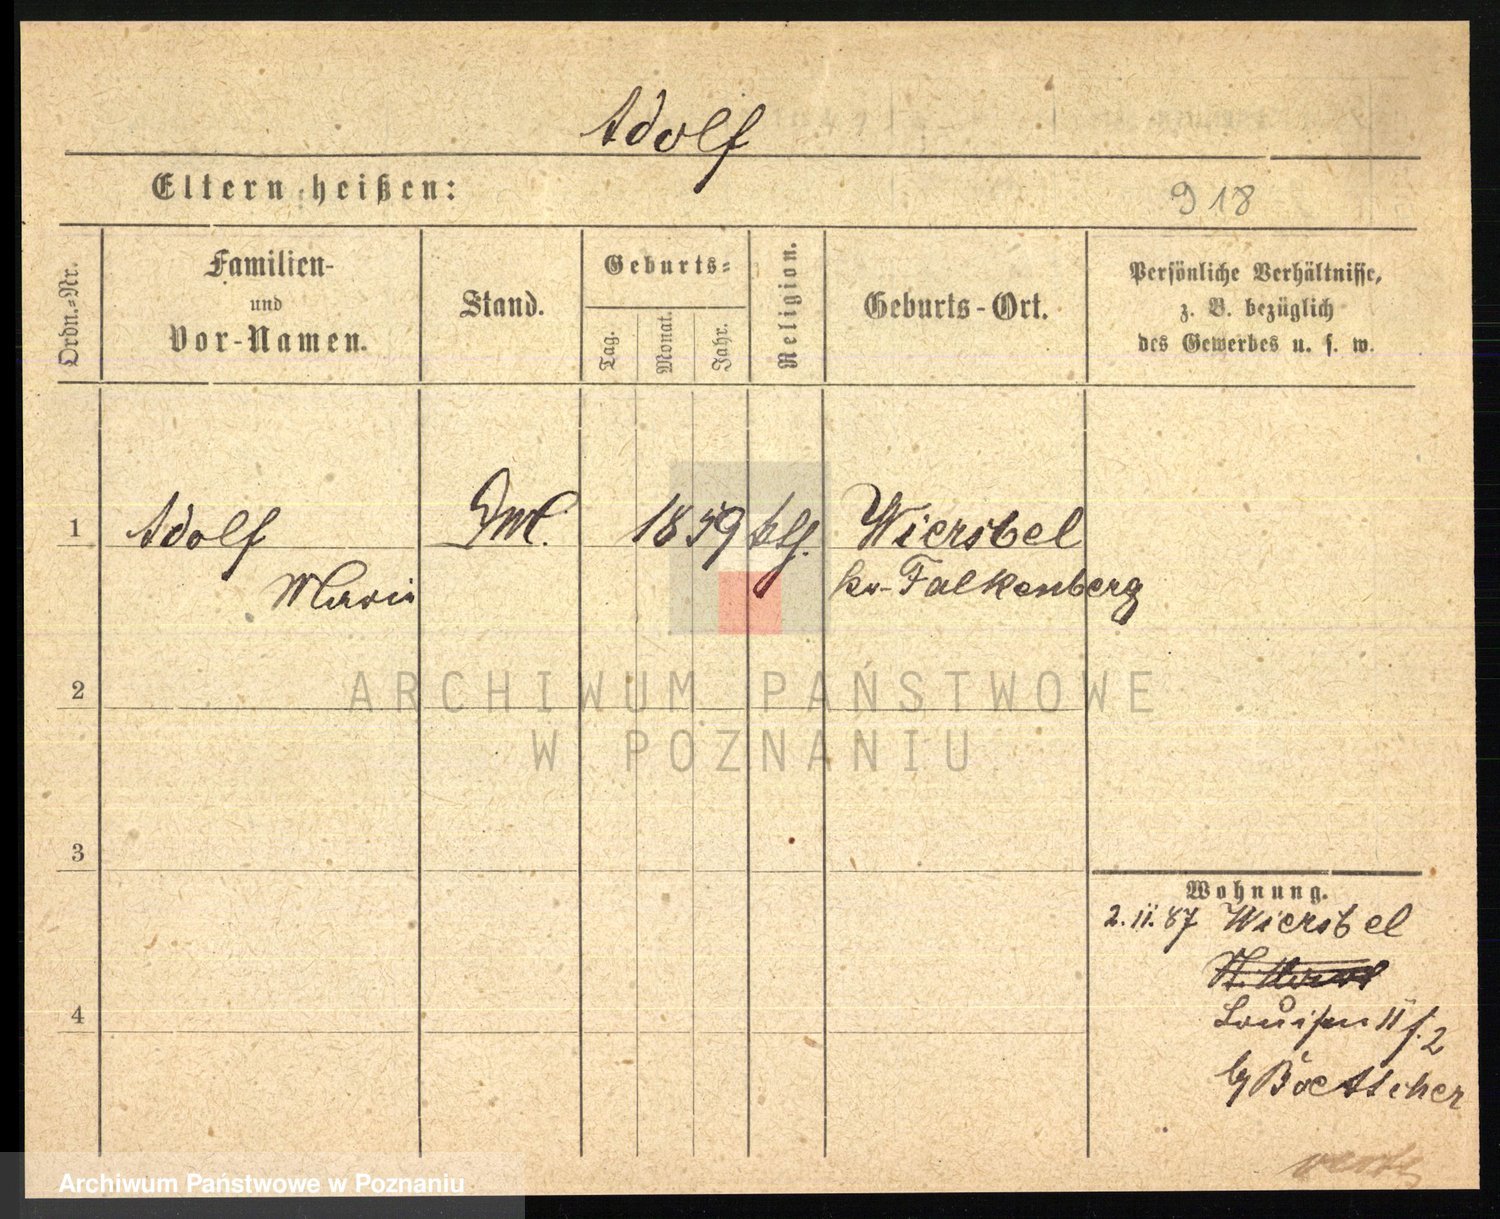 Adolf
Eltern heißen:
918
Ordn.-Nr.
Familien-
und
Vor-Namen.
Stand.
Geburts-
Tag.
Monat.
Jahr.
Religion.
Geburts-Ort.
Persönliche Verhältnisse,
z. B. bezüglich
des Gewerbes u. s. w.
1 Adolf 1859 ktl. Wiersbel
Marie Kr. Falkenberg
2
ARCHIWUM PAŃSTWOWE
W POZNANIU
3
Wohnung.
2.11.87 Wiersbel
4
Louisen 11 f. 2
b/ Boettcher
Archiwum Państwowe w Poznaniu